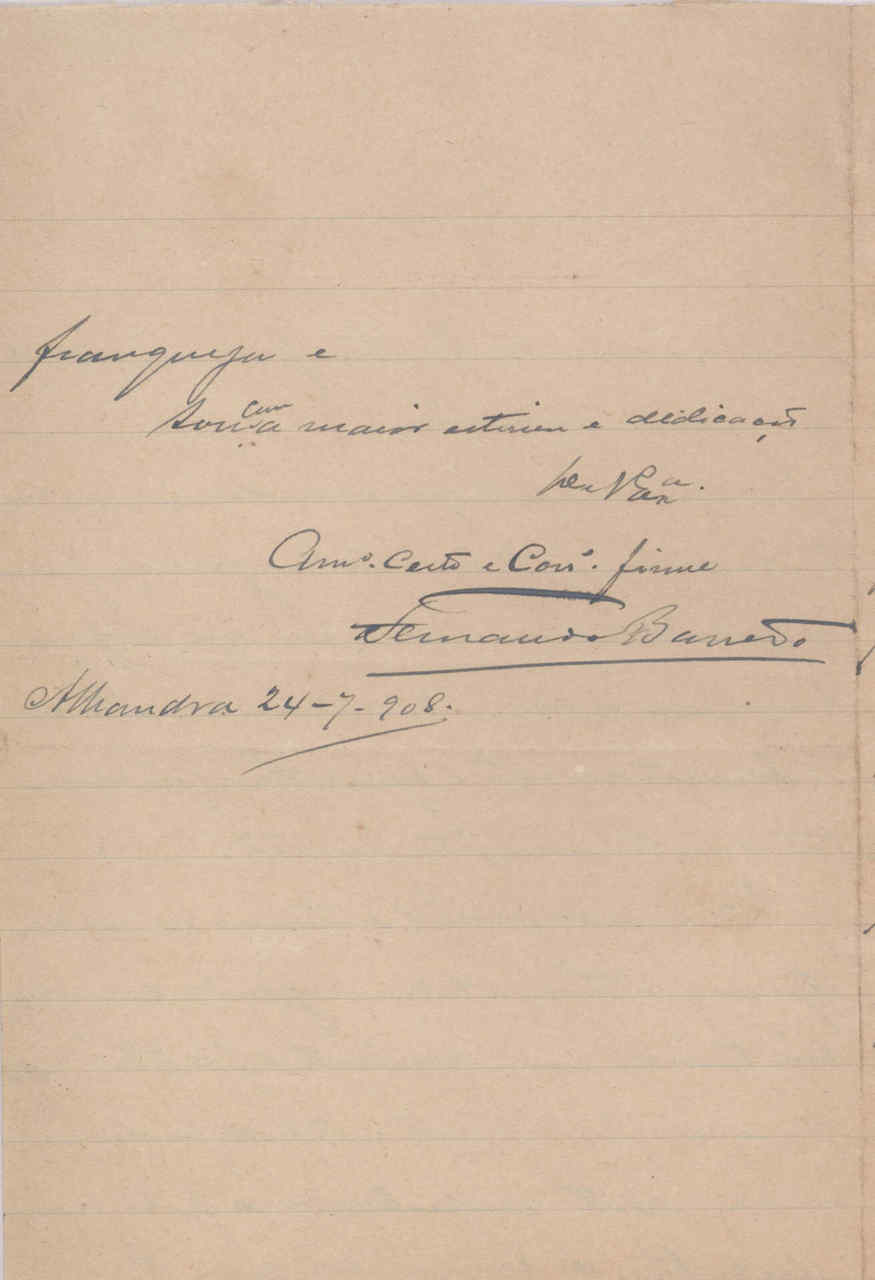 franqueza e
sou com a maior estima e dedicação
de V.
Am.º certo e Corr.º firme
Fernando Barreto
Alhandra 24-7-908.